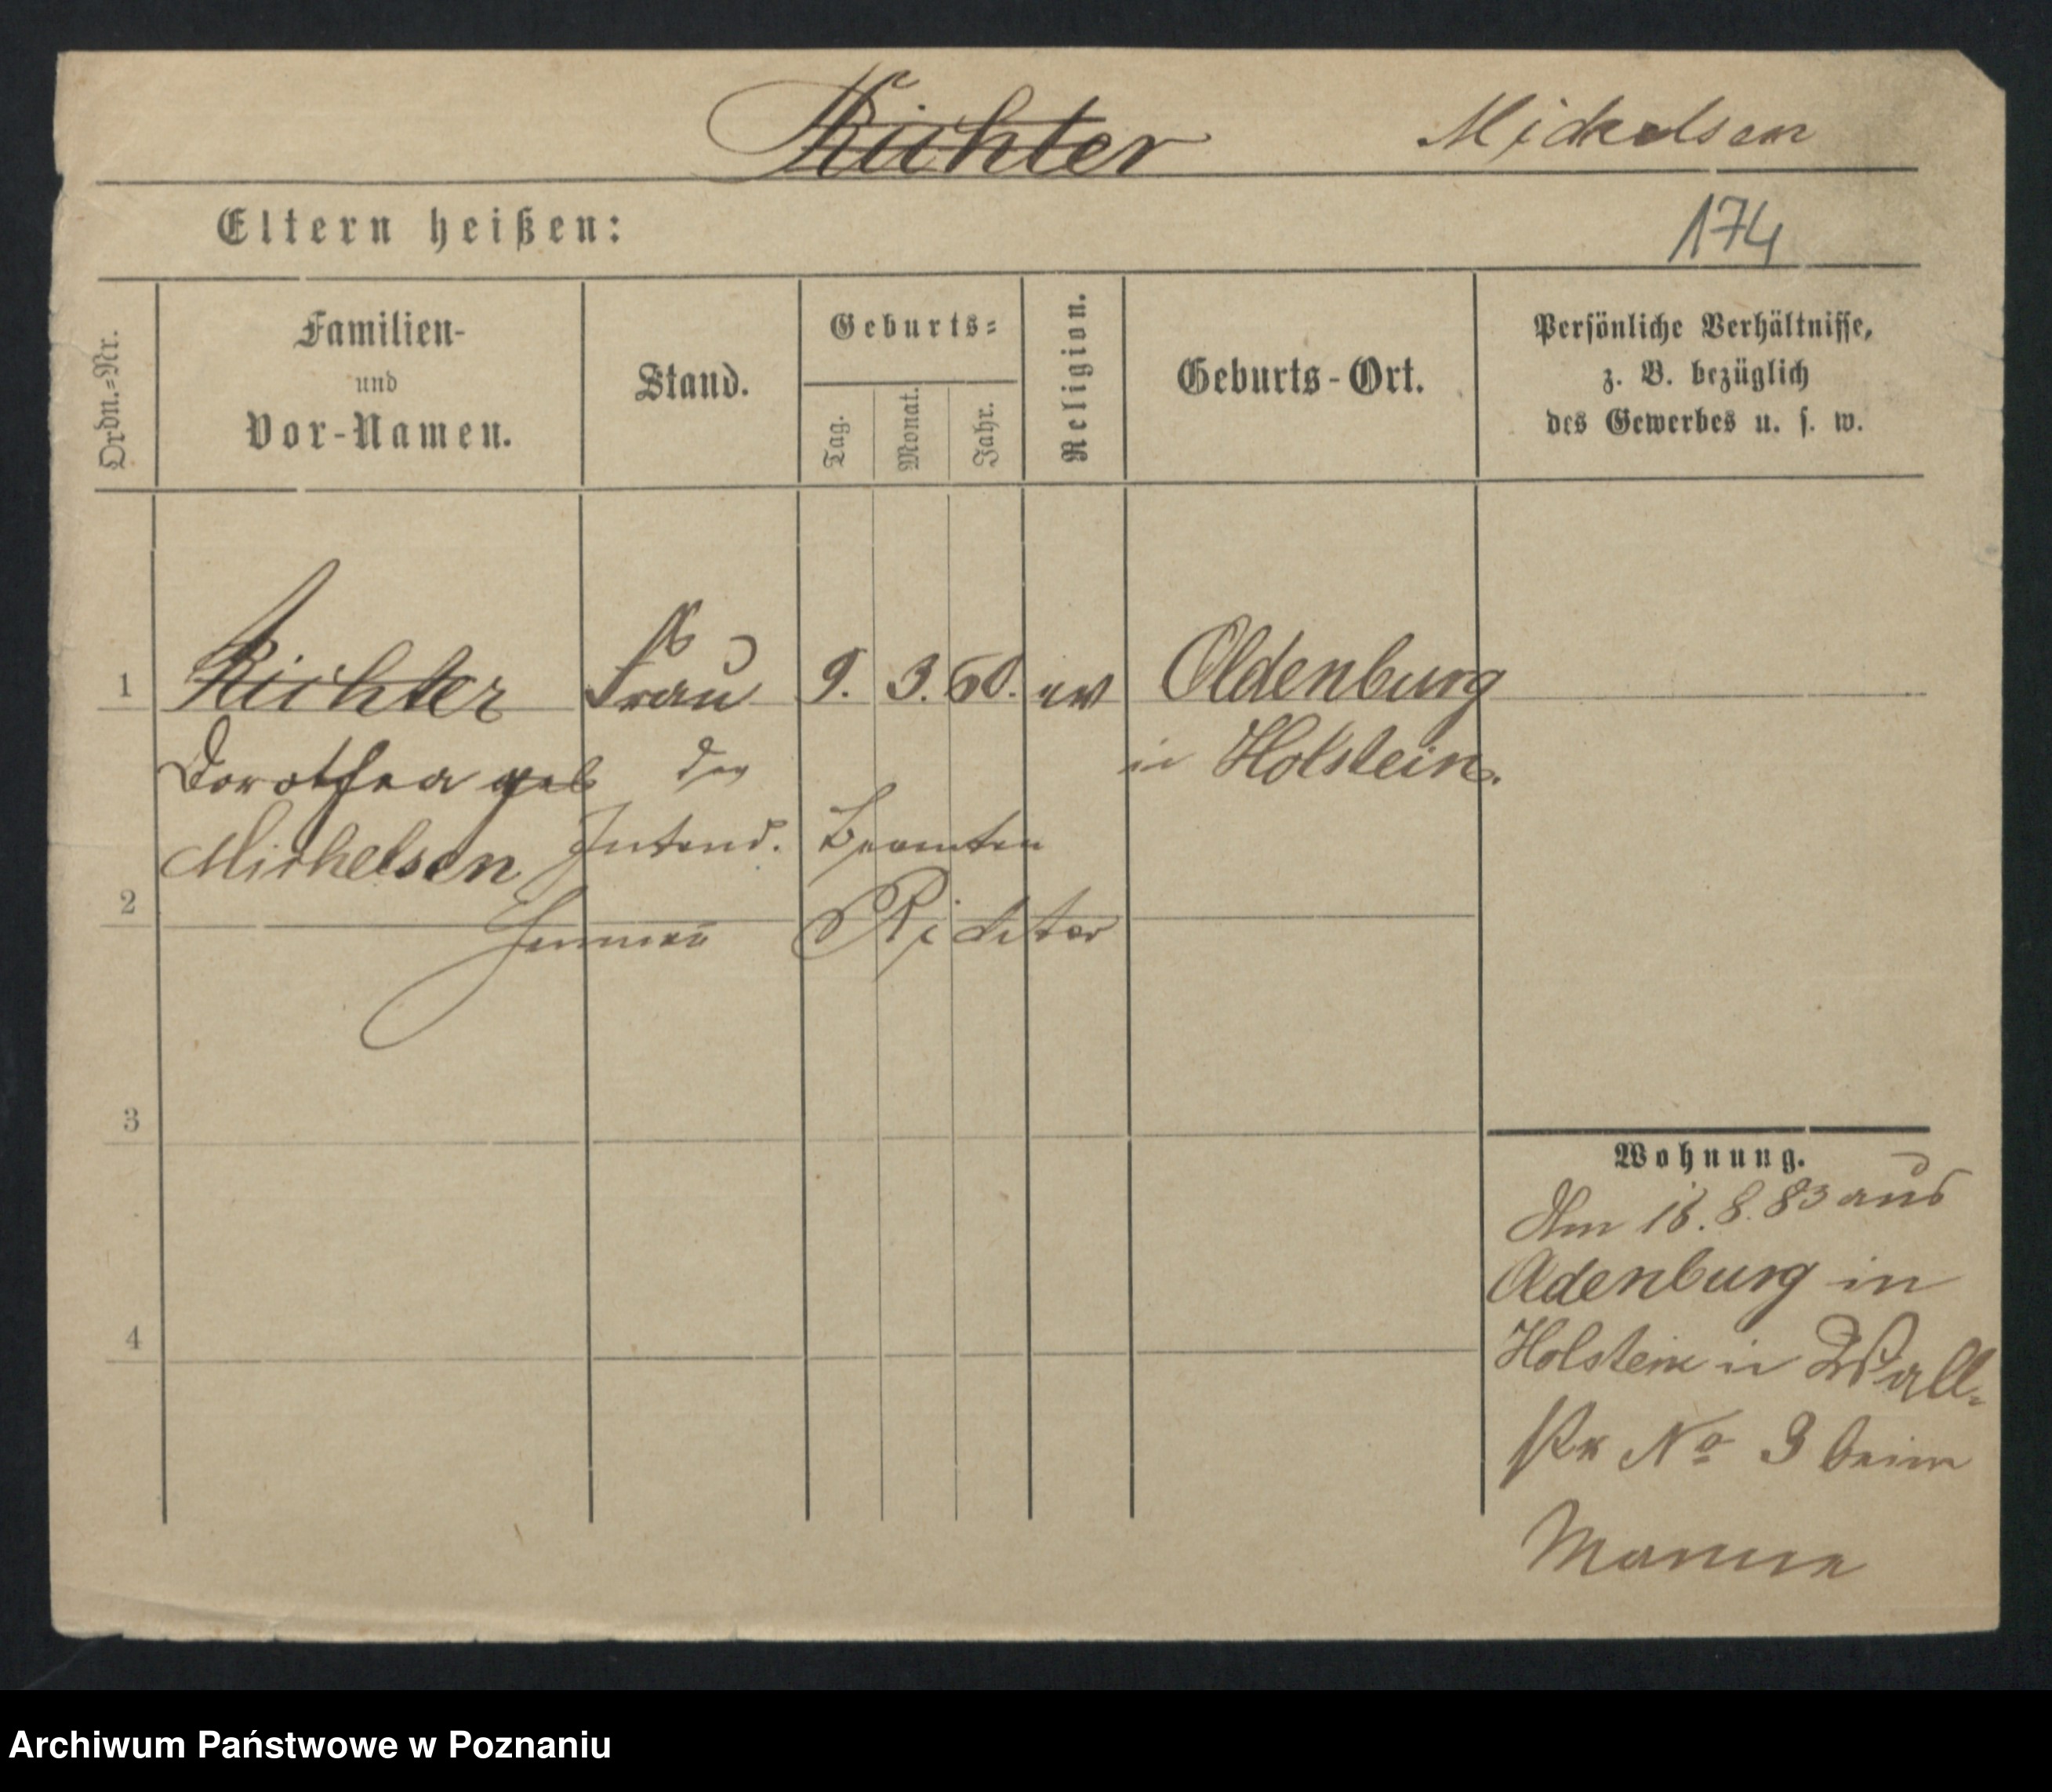 Richter Michelsen
Eltern heißen:
174
Ordn.=Nr.
Familien-
und
Vor-Namen.
Stand.
Geburts=
Tag.
Monat.
Jahr.
Religion.
Geburts-Ort.
Persönliche Verhältnisse,
z. B. bezüglich
des Gewerbes u. s. w.
1 Richter Frau 9. 3. ev Oldenburg
Dorothea geb der in Holstein.
Michelsen Intend. Beamten
2
Herman̄ Richter
3
4
Wohnung.
Am 18. 8. 83 aus
Oldenburg in
Holstein in Wall-
Str No 3 beim
Manne
Archiwum Państwowe w Poznaniu